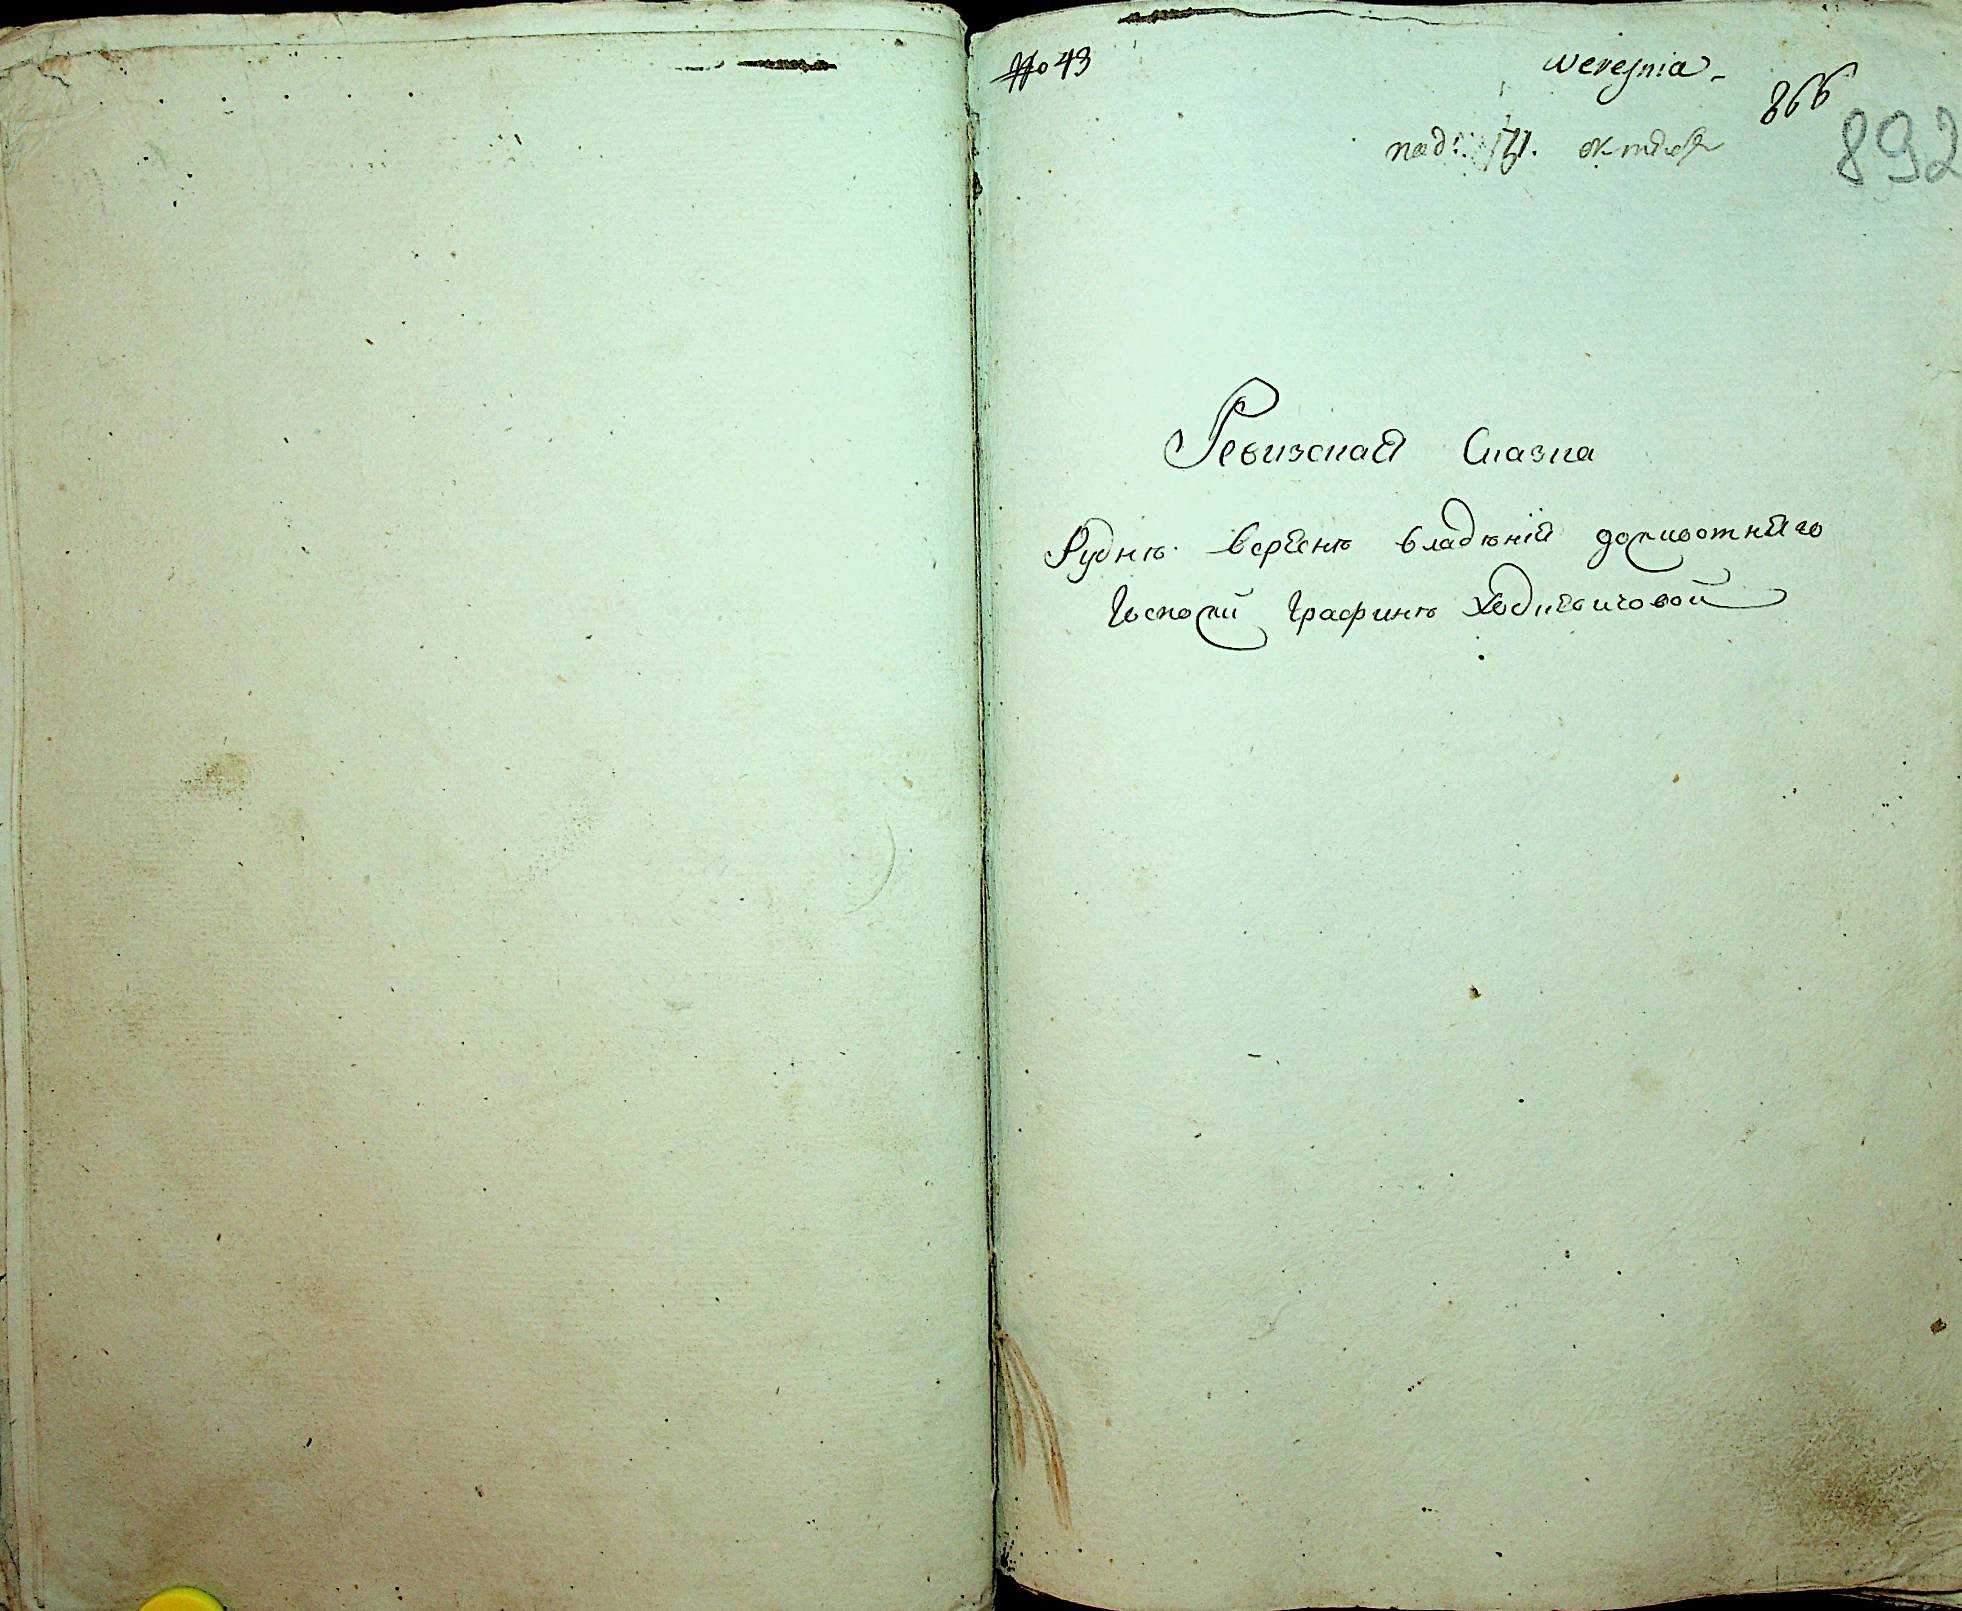 No 43
Weresnia
866
892
под: октября
Ревизская Сказка
Рудне Вересне владения доживотнаго
Госпожи Графине Ходкевичовой